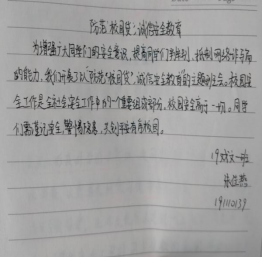 防范校园贷，诚信安全教育
为增强广大同学们的安全意识，提高同学们辨别、抵制网络诈骗
的能力，我们开展了以"防范"校园贷"，诚信安全教育的主题班会。校园安
全工作是全社会安全工作中的一个重要组成部份。校园安全高于一切。同学
们需谨记安全，警惕隐患，共创平安校园。
19级文一班
191110139